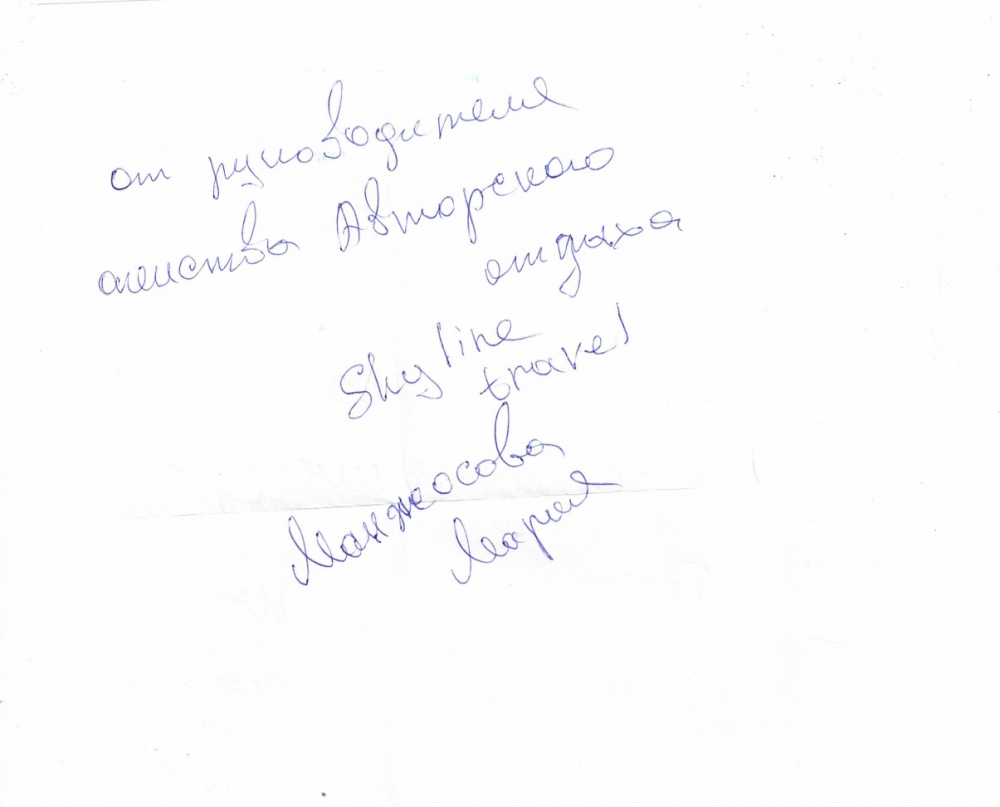 от руководителя
агенства Авторского
отдыха
Skyline
travel
Манжосова
Мария